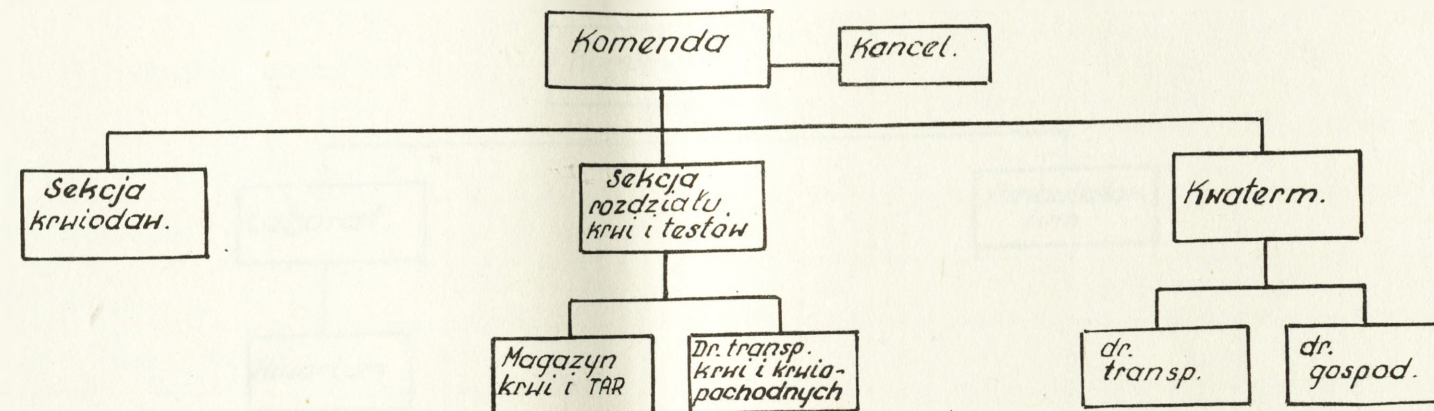 Komenda
Kancel.
Sekcja
krwiodaw.
Sekcja
rozdziału
krwi i testów
Kwaterm.
Magazyn
krwi i TAR
Dr. transp.
krwi i krwio-
pochodnych
dr.
transp.
dr.
gospod.